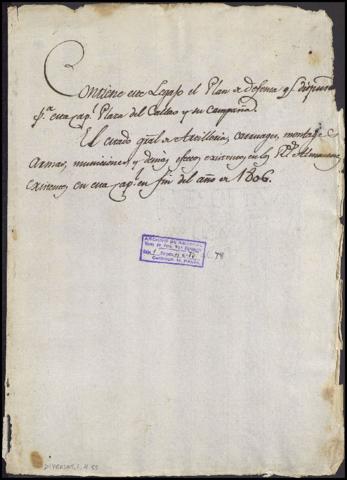 Contiene este Legajo el Plan de defensa q.e se dispuso
p.a esta cap.l Plaza del Callao y su campaña.
El estado gral de Artilleria, cureñages, montages
Armas, municiones y demas efectos existentes en los R.s Almacenes
existentes en esta cap.l en fin del año de 1806.
79
DIVERSAS, 1, N.55